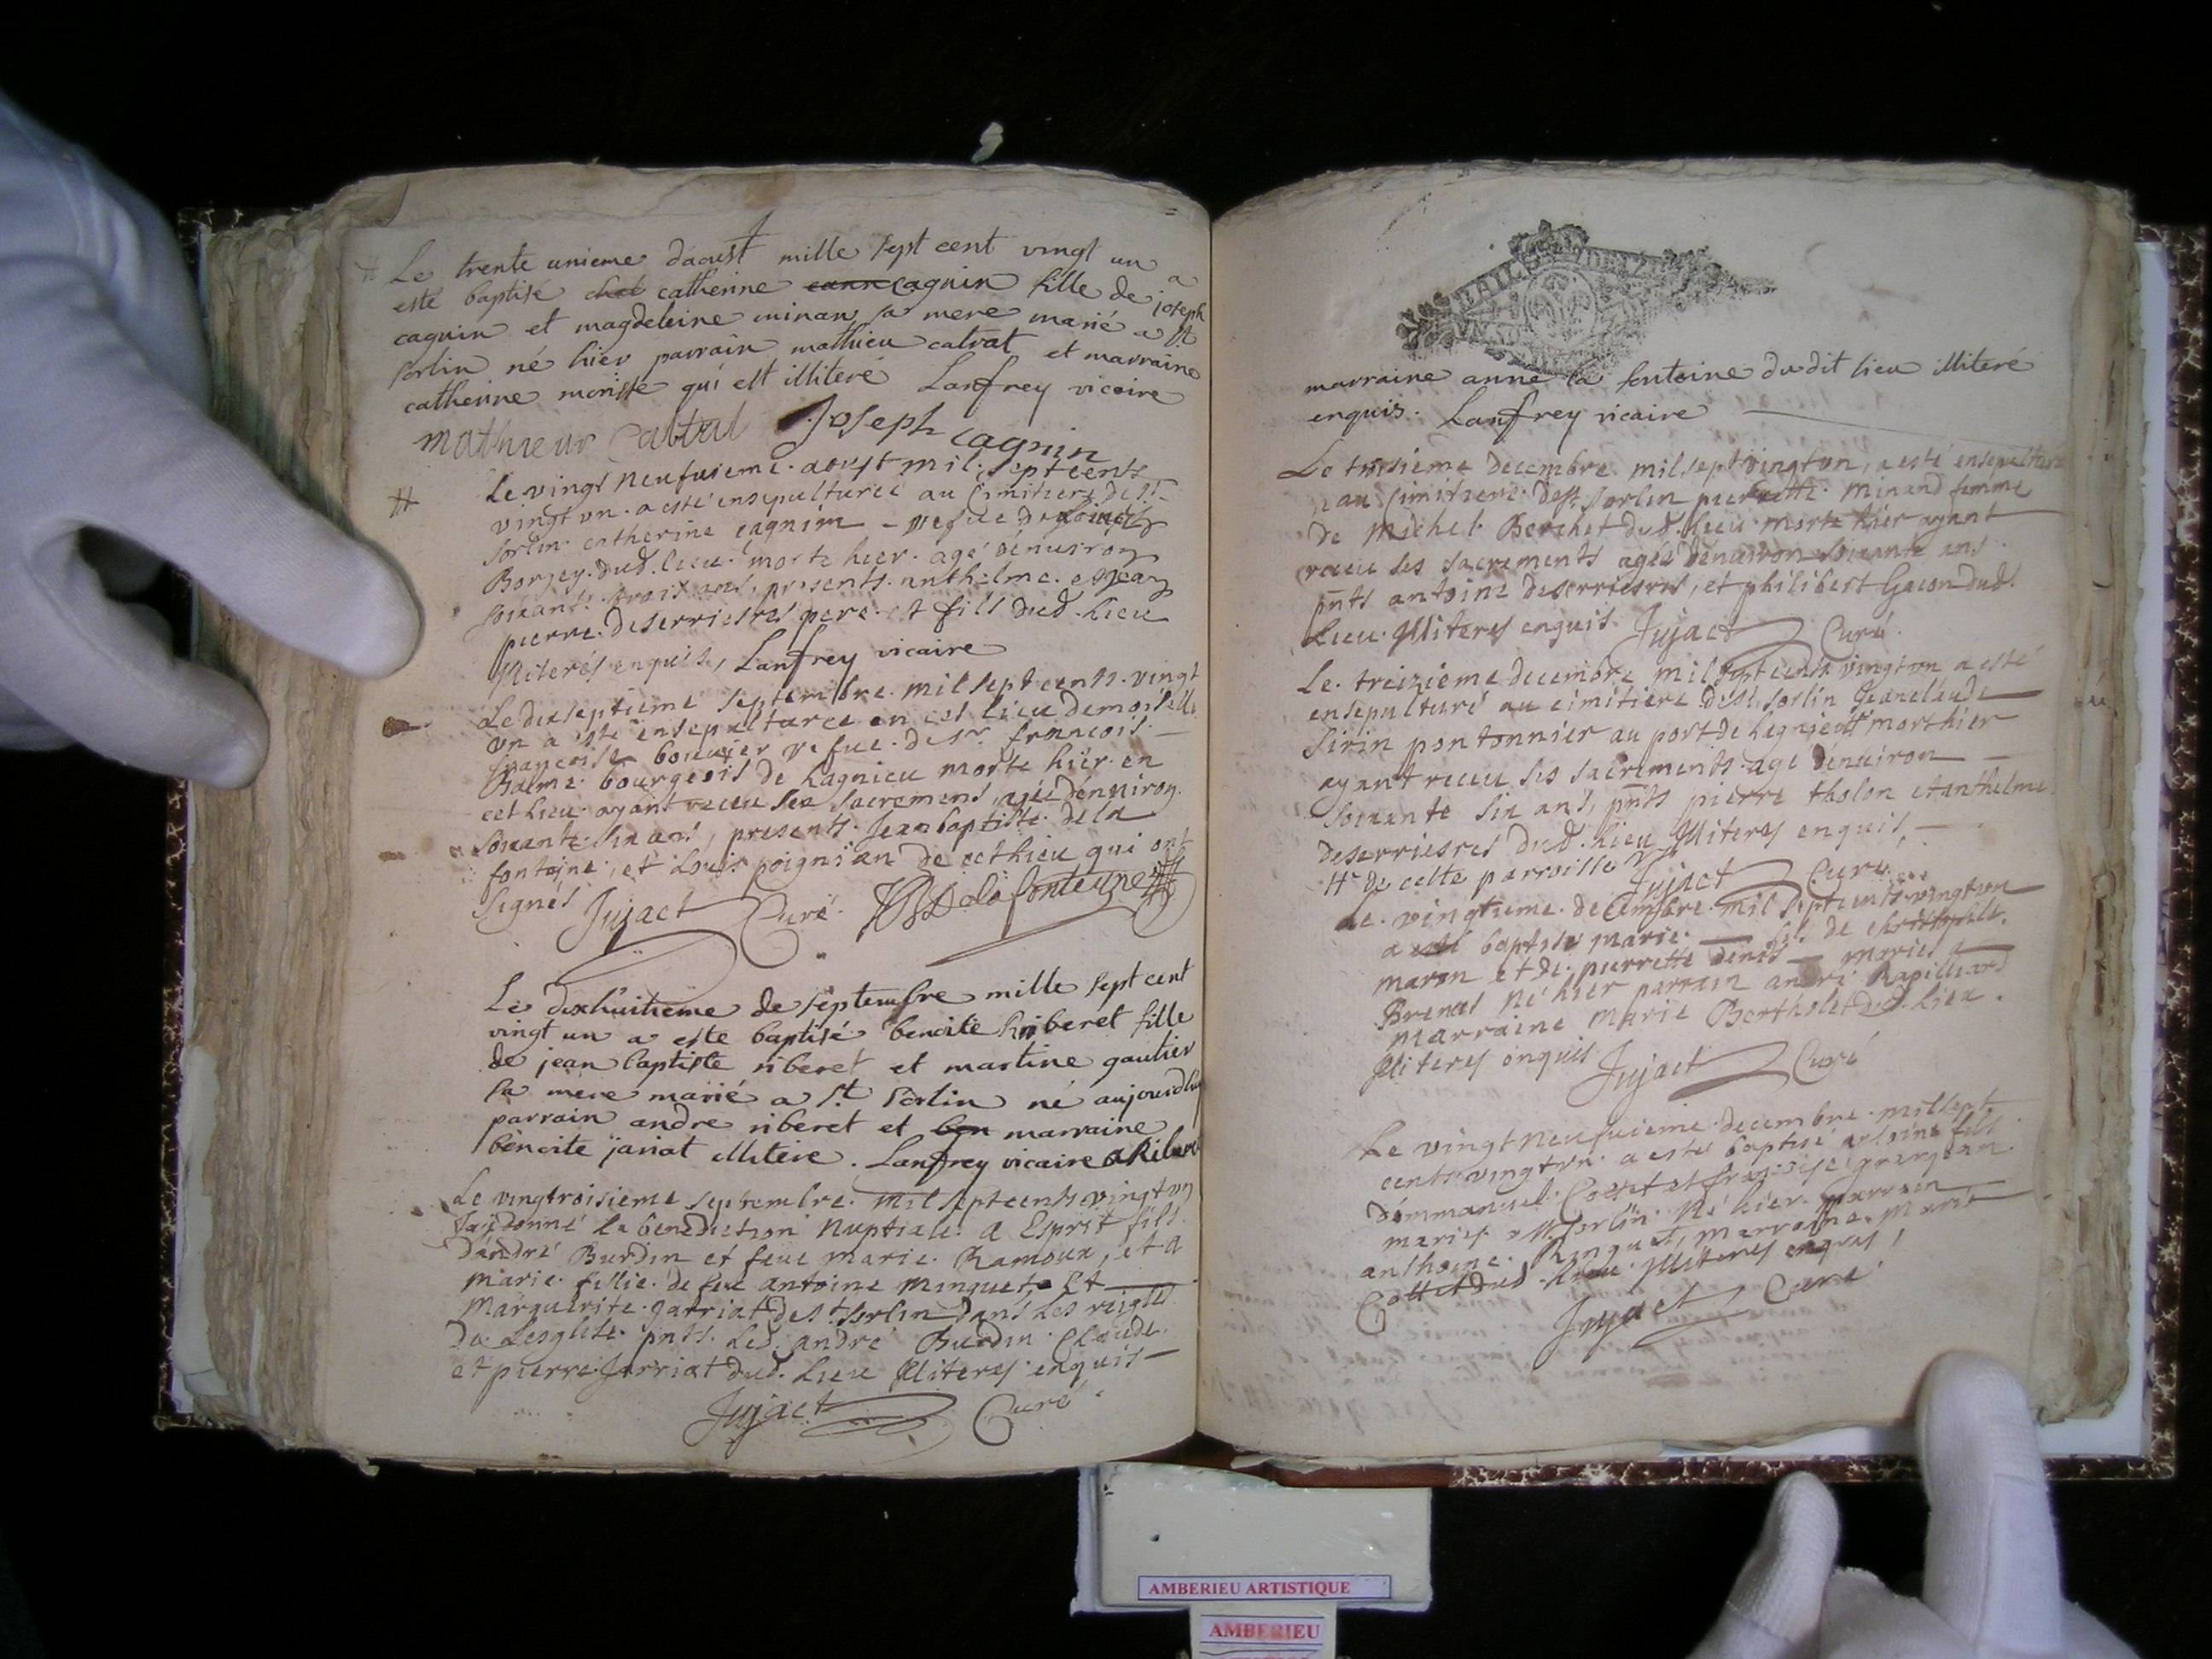 Le trente unieme daoust mille sept cent vingt un a
esté baptisé catherine cagnin fille de joseph
cagnin et magdeleine minan sa mere marié a st
sorlin né hier parrain mathieu catrat et marraine
catherine qui est illiteré Lanfrey vicaire
mathieur Joseph cagnin
Le vingt neufuieme aoust mil sept cents
vingt un a esté ensepulturée au cimitiere de st
sorlin catherine cagnin vefue de
Borjey dud. lieu morte hier agé dénuiron
soixante trois ans, presents anthelme et jean
pierre deserriestres pere et fils dud. lieu
illiterés enquis, Lanfrey vicaire
Le dixseptieme septembre mil sept cents vingt
un a esté ensepulturee en cet lieu demoiselle
francoise bouuier vefue de sr. francois
Balme bourgeois de Lagnieu morte hier en
cet lieu ayant receu ses sacremens agée dénuiron
soixante six ans, presents Jean baptiste de la
fontaine, et Louis poignian de cet lieu qui ont
signés Jujact Curé. JB De lafonteyne
Le dixhuitieme de septembre mille sept cent
vingt un a este baptisé benoite riberet fille
de jean baptiste riberet et martine gautier
sa mere marié a st sorlin né aujourdhuy
parrain andre riberet et ben marraine
benoite jariat illitéré. Lanfrey vicaire
Le vingtroisieme septembre mil septcents vingt un
Jay donné la benediction nuptiale a Esprit fils
dándré Burdin et feue marie Ramoux, et a
marie fillie de feu antoine minguet et
Marguerite Jarriat de st. sorlin dans les reigles
de Lesglise pnts. led. andré Burdin Claude
et pierre Jarriat dud. Lieu illiteres enquis
Jujact Curé
marraine anne la fontaine dudit lieu illiteré
enquis. Lanfrey vicaire
Le troisieme decembre mil sept vingt un, a esté ensepulturé
au cimitiere de st sorlin pierrette Minand femme
de Michel Berchet dud. lieu morte hier ayant
receu ses sacrements agée dénuiron soixante ans
pnts antoine deserriesres, et philibert Gacon dud.
Lieu illiteres enquis Jujact Curé.
Le treizieme decembre mil sept cents vingt un a esté
ensepulturé au cimitiere de st sorlin Jeanclaude
Sirin pontonnier au port de Lagnieu mort hier
ayant receu ses sacrements agé dénuiron
soixante six ans, pnts pierre tholon et anthelme
deserriesres dud. lieu illiteres enquis,
de cette parroisse Jujact Curé
Le vingtieme decembre mil septcents vingt un
a esté baptisé marie de christophle
maron et de pierrette denis maries a
Brenas né hier parrain andré Rapilliard
marraine marie Bertholet dud. lieu.
illiteres enquis Jujact Curé
Le vingt neufuieme decembre mil sept
cents vingt un a esté baptisé antoine fils
démmanuel Cottet et francoise granjean
maries a st. sorlin né hier parrain
anthoine Minguet, marraine Marie
Cottet dud. lieu illiteres enquis,
Jujact Curé
AMBERIEU ARTISTIQUE
AMBERIEU